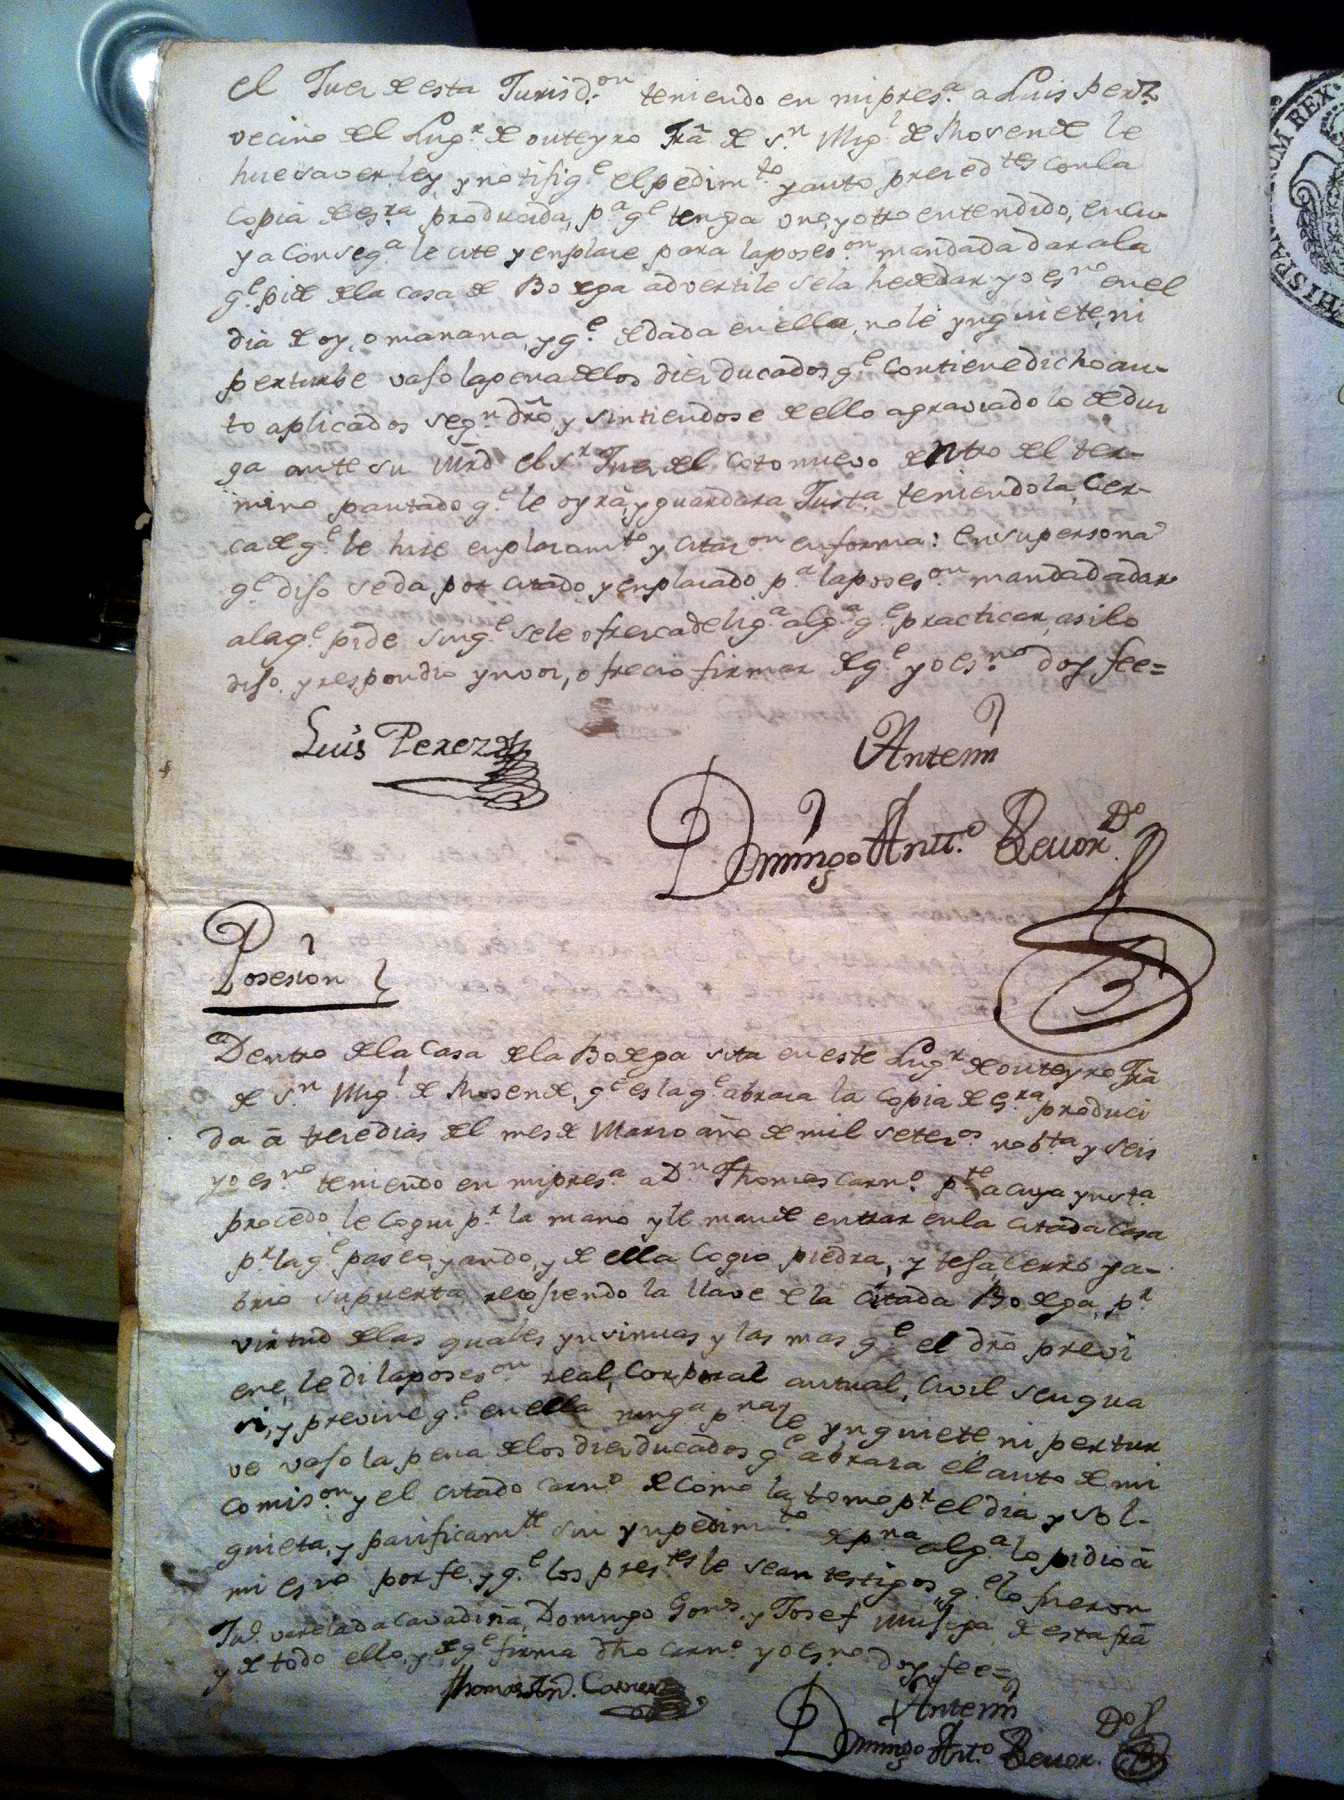 el Juez de esta Jurisd.on teniendo en mi pres.a a Luis Perz
vecino del Lug.r de outeyro frã de s.n Mig.l de Rosende le
hize saver, ley, y notifiq.e el pedim.to y auto preced.tes con la
copia de es.ra producida, p.a q.e tenga uno, y otro entendido, en cu-
ya conseq.a le cite y enplace para la poses.on mandada dar a la
q.e pide de la casa de Bodega advertile se la he de dar yo es.no en el
dia de oy, o manana, y q.e dada en ella, no le ynquiete, ni
perturbe vajo la pena de los diez ducados q.e contiene dicho au-
to aplicados seg.n drõ y sintiendose de ello agraviado lo dedus
ga ante su Mrd el s.r Juez del coto nuevo dentro del ter-
mino pautado q.e le oyrã, y guardara Just.a teniendola, cer-
ca de q.e le hize enplazam.to y citaz.on en forma: en su persona
q.e dijo se da por citado, y enplazado p.a la poses.on mandada dar
a la q.e pide sin q.e se le ofrezca delig.a alg.a q.e practicar, asi lo
dijo, y respondio ynvoz, ofrecio firmar de q.e yo es.no doy fee=
Luis Perez
Antemi
Domingo Antt.o Becior Do
Posesion
Dentro de la Casa de la Bodega sita en este Lug.r de outeyro frã
de s.n Mig.l de Rosende, q.e es la q.e abraza la copia de es.ra produci
da ã treze dias del mes de Marzo año de mil setez.os nob.ta y seis
yo es.no teniendo en mi pres.a a D.n Thomas Carn.o p.te a cuya ynsta
procedo le cogui p.r la mano y le mande entrar en la citada casa
p.r la q.e paseo, y ando, y de ella cogio piedra, y teja, cerro y a-
brio su puerta recojiendo la llave de la citada Bodega, p.r
virtud de las quales ynsinuas y las mas q.e el drõ previ
ene, le di la poses.on real, corporal autual, civil seu qua
si, y previne q.e en ella ning.a p.na le ynquiete, ni pertur
ve vajo la pena de los diez ducados q.e abraza el auto de mi
comis.on y el citado Carn.o de como la tomo p.r el dia y sol-
quieta, y pacificam.te sin ynpedim.to de p.na alg.a lo pidio ã
mi es.no por fe, y q.e los pres.tes le sean testigos, q.e lo fueron
Ju.o varela da cavadiña, Domingo Gonz. y Josef de esta frã
y de todo ello, y de q.e firma dho Carn.o yo es.no doy fee=
Thomas An. Carnero
Antemi
Domingo Ant.o Becior. Do
HISPANIARUM REX.